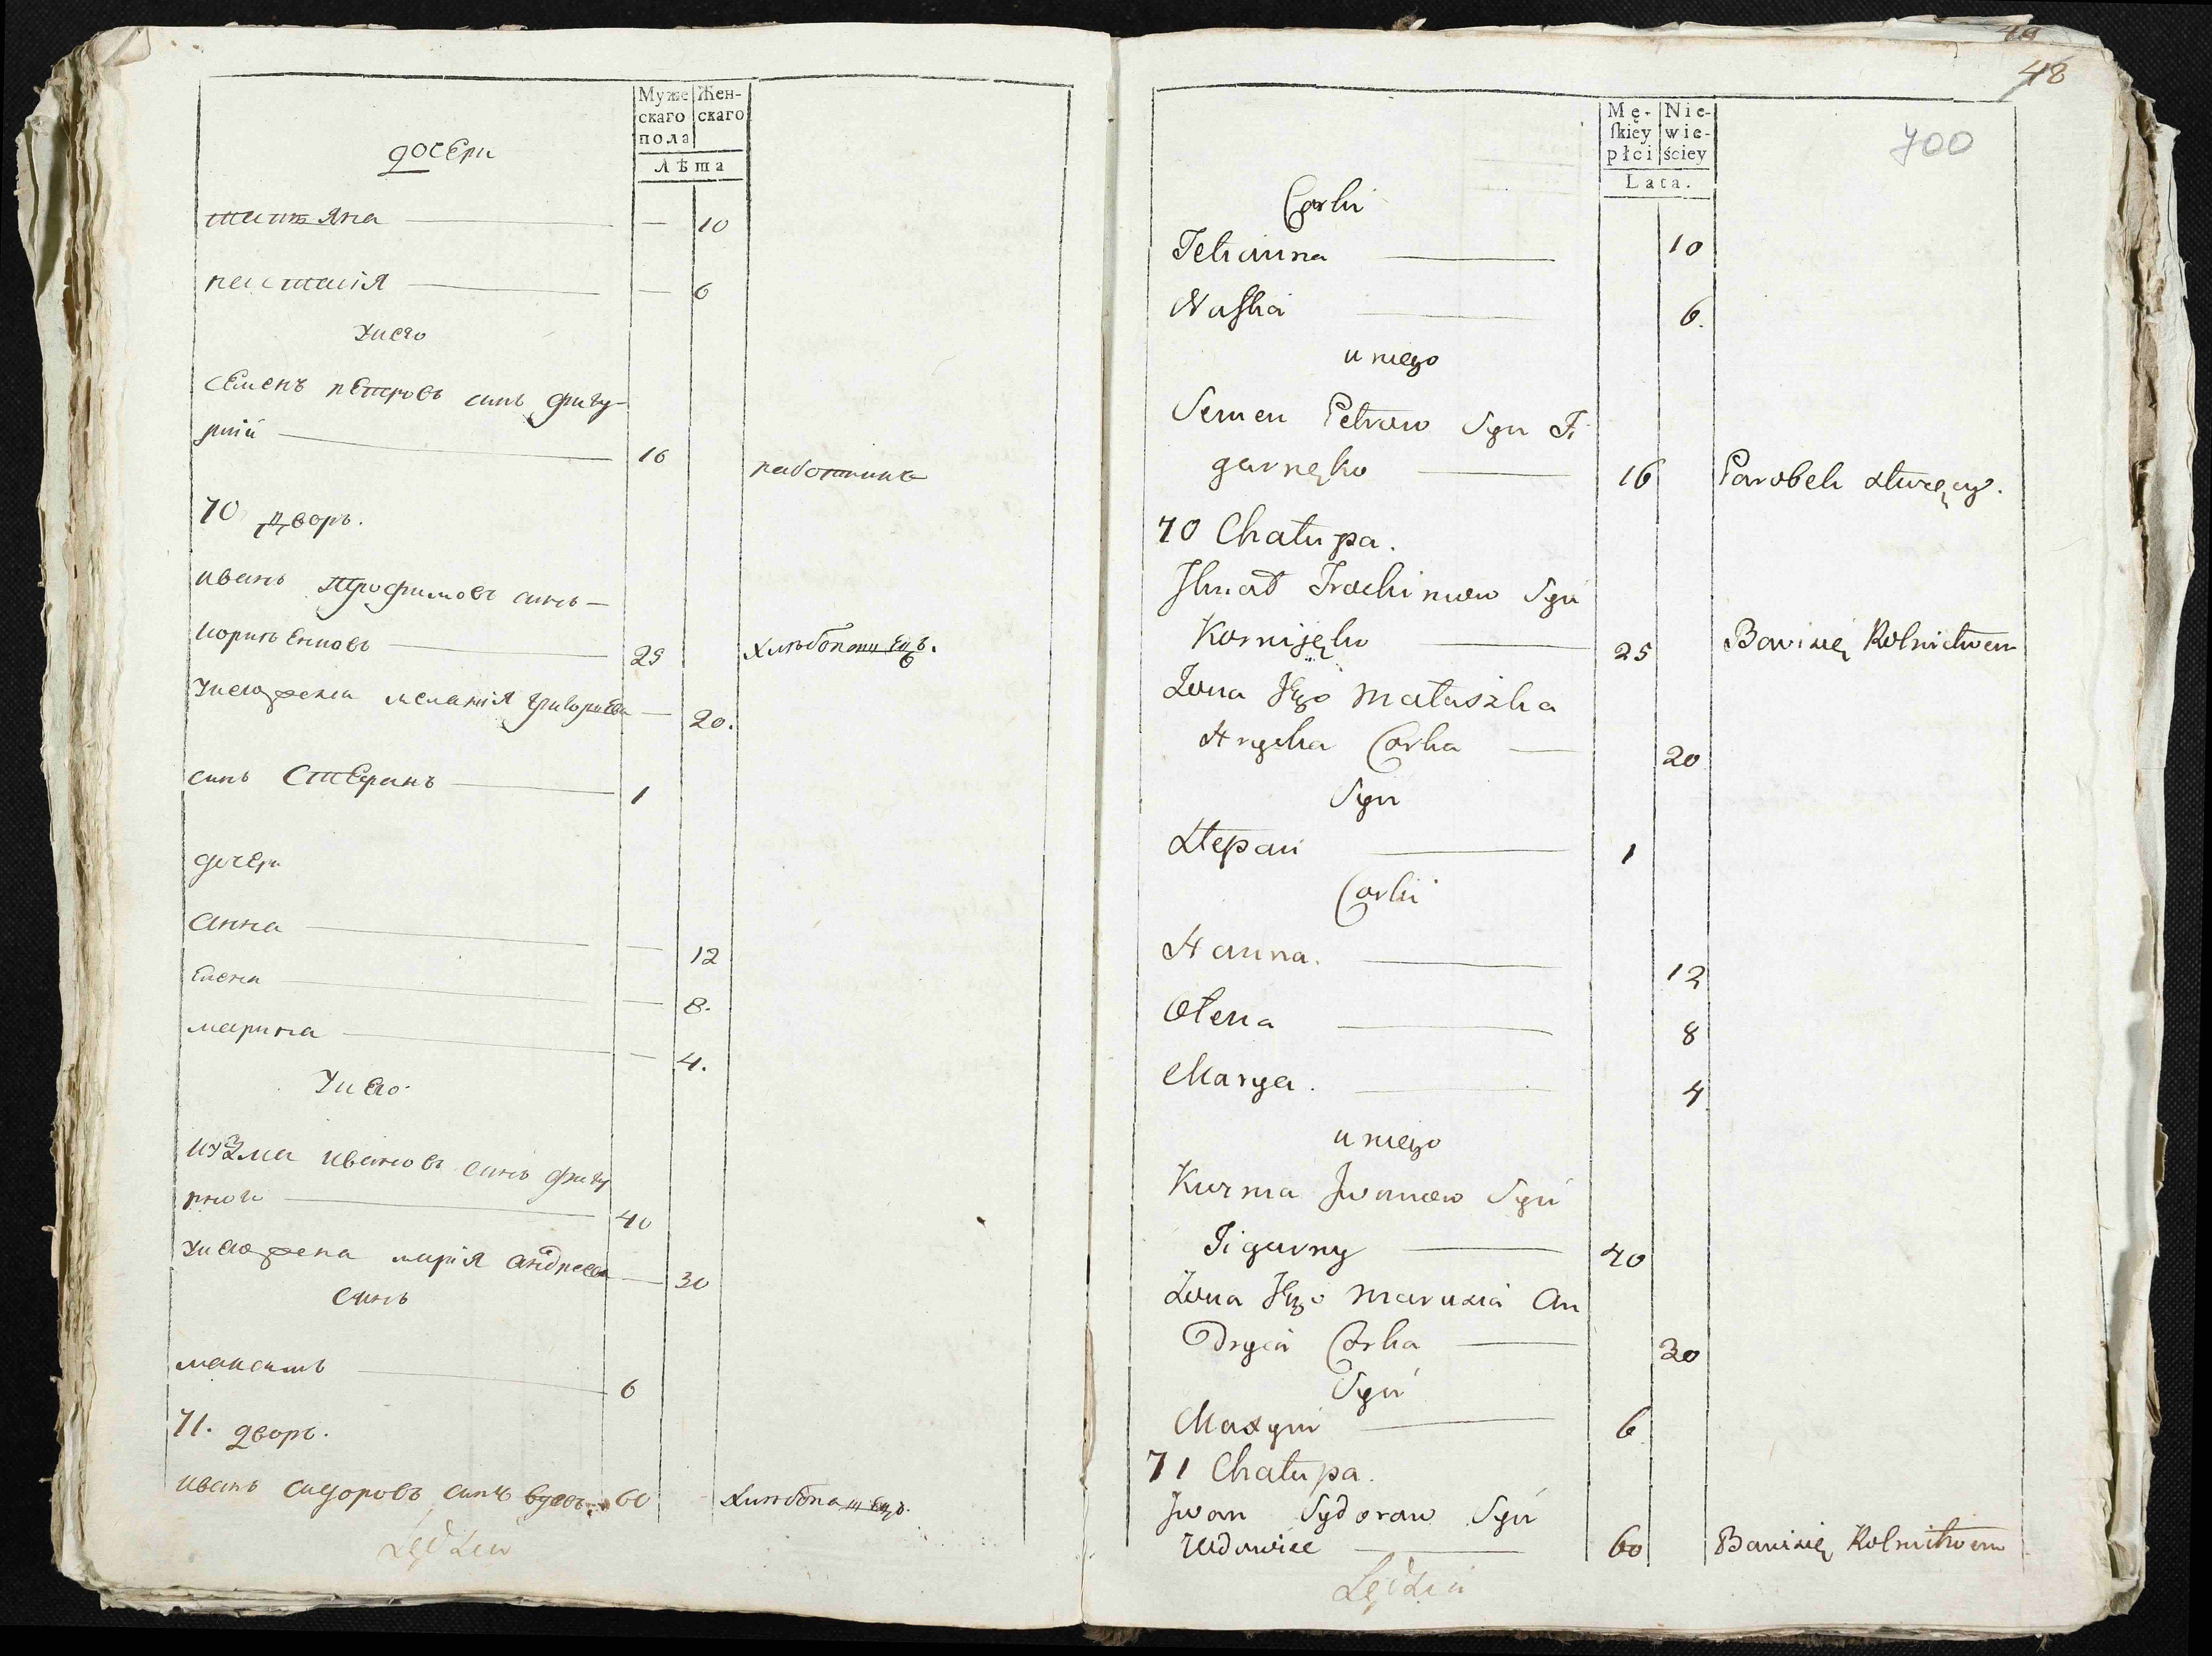 Муже
скаго
пола
Жен-
скаго
Лѣта
дочери
татьяна — 10
настасія — 6
унего
семенъ петровъ синъ фигу-
рній 16 работникъ
70 дворъ.
иванъ трофимовъ синъ
корнѣенковъ 25 хлѣбопашецъ.
унегожена меланія григориева — 20.
синъ Стефанъ 1
дочери
Анна — 12
Елена — 8.
марина — 4.
унего
кузма ивановъ синъ фигу
рной 40
унегожена марія андреева — 30
синъ
максимъ 6
71. дворъ.
иванъ сидоровъ синъ вдовъ 60 хлѣбопашецъ.
48
700
Mę-
skiey
płci
Nie-
wie-
ściey
Lata.
Corki
Tetianna 10
Nastia 6.
u niego
Semen Petrow Syn Fi
garnęko 16 Parobek
70 Chałupa.
Ihnat Trochimow Syn
Kornijęko 25 Bawisię Rolnictwem
Zona Jego Małaszka
Hrycka Corka 20
Syn
Stepan 1
Corki
Hanna. 12
Ołena 8
Marya. 4
u niego
Kuzma Iwanow Syn
Figurny 40
Zona Jego Marusia An
Dryia Corka 30
Syn
Maxym 6
71 Chałupa.
Iwan Sydorow Syn
Wdowiec 60 Bawisię Rolnictwem